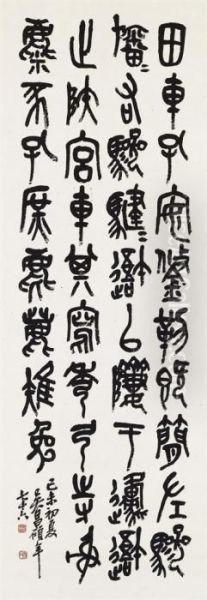 田車孔安鋚勒既簡左驂
旛〻右驂騝〻䢒以隮于邍䢒
止陜宮車其寫秀弓寺射
麋豕孔庶麀鹿雉兔
己未初夏
吳昌碩年
七十六